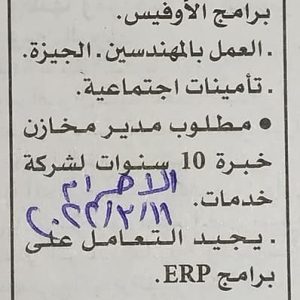 برامج الأوفيس.
. العمل بالمهندسين. الجيزة.
. تأمينات اجتماعية.
• مطلوب مدير مخازن
خبرة 10 سنوات لشركة
خدمات.
الاهرام
٢٠٢٢/٢/١١
. يجيد التعامل على
برامج ERP.